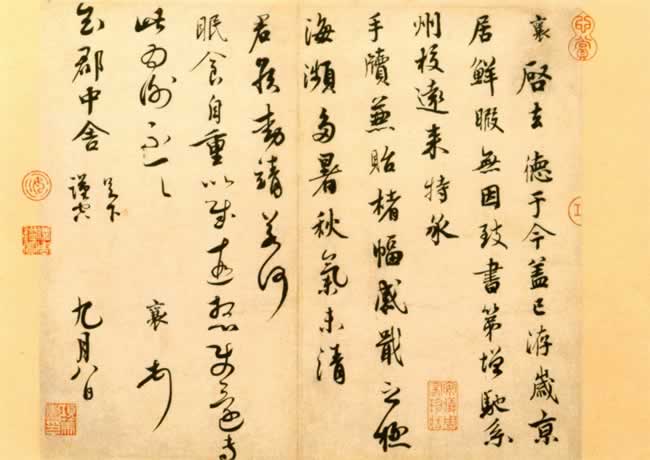 襄啓去德于今蓋已洊歲京
居鮮暇無因致書第增馳系
州校遠來特承
手牘兼貽楮幅感戢之極
海瀕多暑秋氣未清
君侯動靜若何
眠食自重以慰遠想使還專
此為謝不一一襄頓首
知郡中舍足下
謹空九月八日